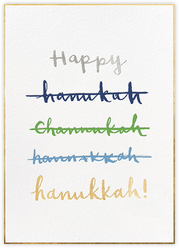 Happy
hanukah
Channukah
hannakkah
hanukkah!